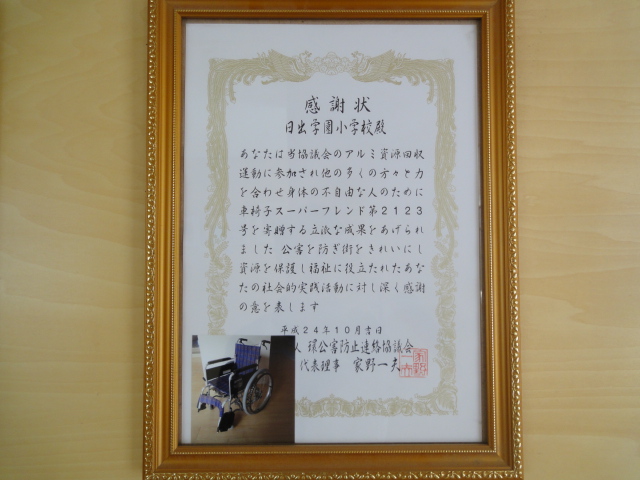 感謝状
日出学園小学校殿
あなたは当協議会のアルミ資源回収
運動に参加され他の多くの方々と力
を合わせ身体の不自由な人のために
車椅子スーパーフレンド第2123
号を寄贈する立派な成果をあげられ
ました 公害を防ぎ街をきれいにし
資源を保護し福祉に役立たれたあな
たの社会的実践活動に対し深く感謝
の意を表します
平成24年10月吉日
人 環公害防止連絡協議会
代表理事 家野一夫